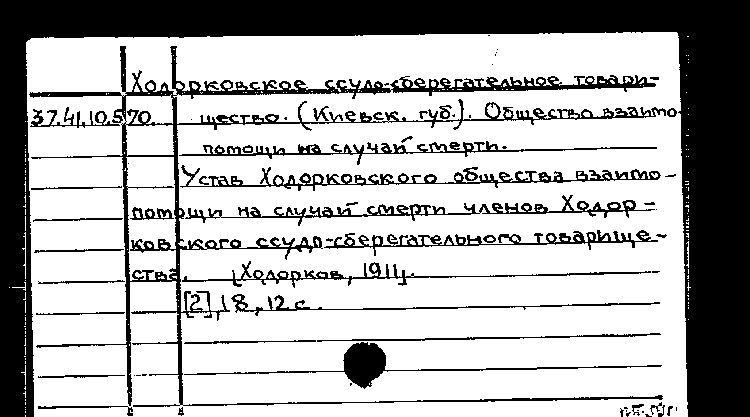 Ходорковское ссудо-сберегательное товари-
37.41.10.570. щество. (Киевск. губ.). Общество взаимо-
помощи на случай смерти.
Устав Ходорковского общества взаимо-
помощи на случай смерти членов Ходор-
ковского ссудо-сберегательного товарище-
ства. [Ходорков, 1911].
[2], 18, 12 с.